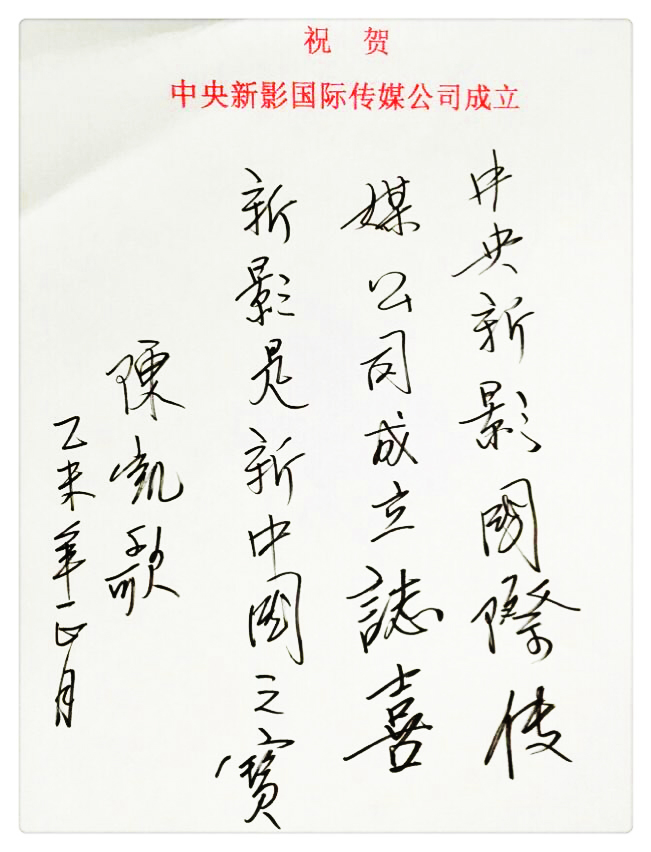 祝 贺
中央新影国际传媒公司成立
中央新影國際传
媒公司成立誌喜
新影是新中國之寳
陳凱歌
乙未年正月